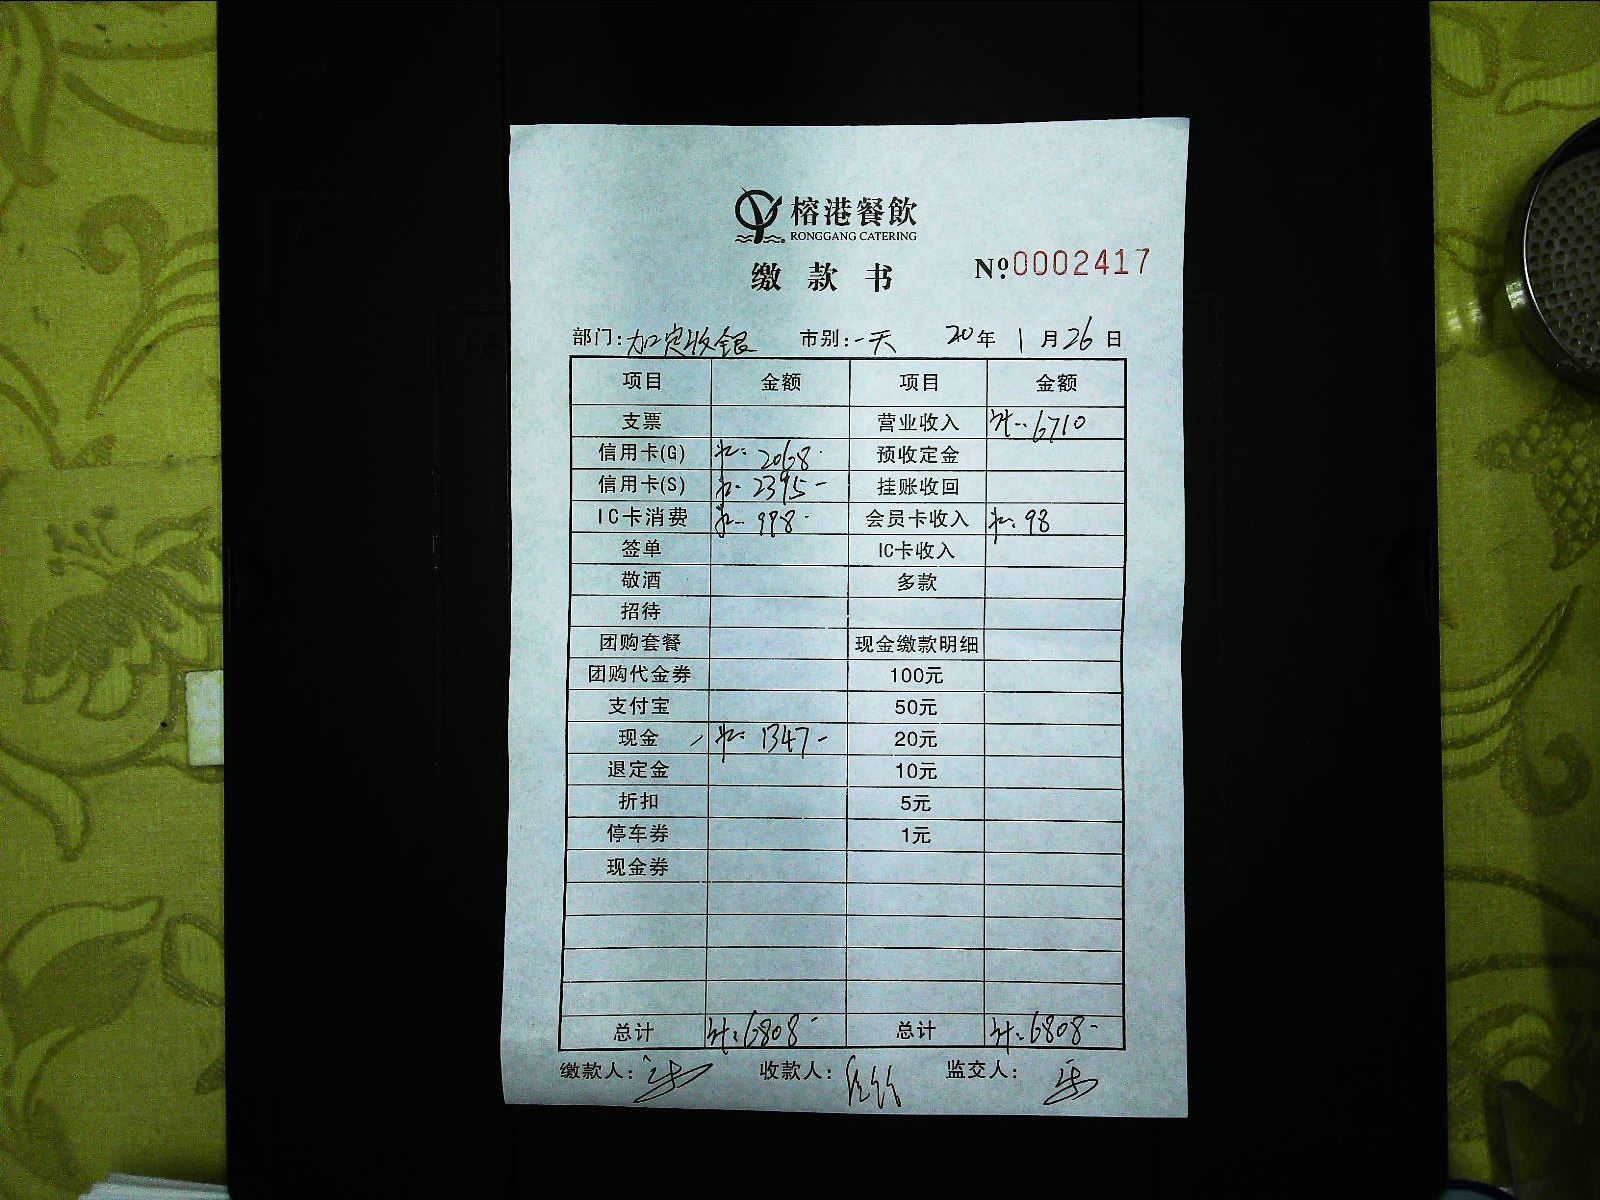 榕港餐飲
RONGGANG CATERING
缴款书 Nº 0002417
部门:加定收银 市别:一天 20年1月26日
项目 金额 项目 金额
支票 营业收入 6710
信用卡(G) 2068 预收定金
信用卡(S) 2395- 挂账收回
IC卡消费 998- 会员卡收入 98
签单 IC卡收入
敬酒 多款
招待
团购套餐 现金缴款明细
团购代金券 100元
支付宝 50元
现金 1347- 20元
退定金 10元
折扣 5元
停车券 1元
现金券
总计 6808- 总计 6808-
缴款人: 收款人: 监交人: